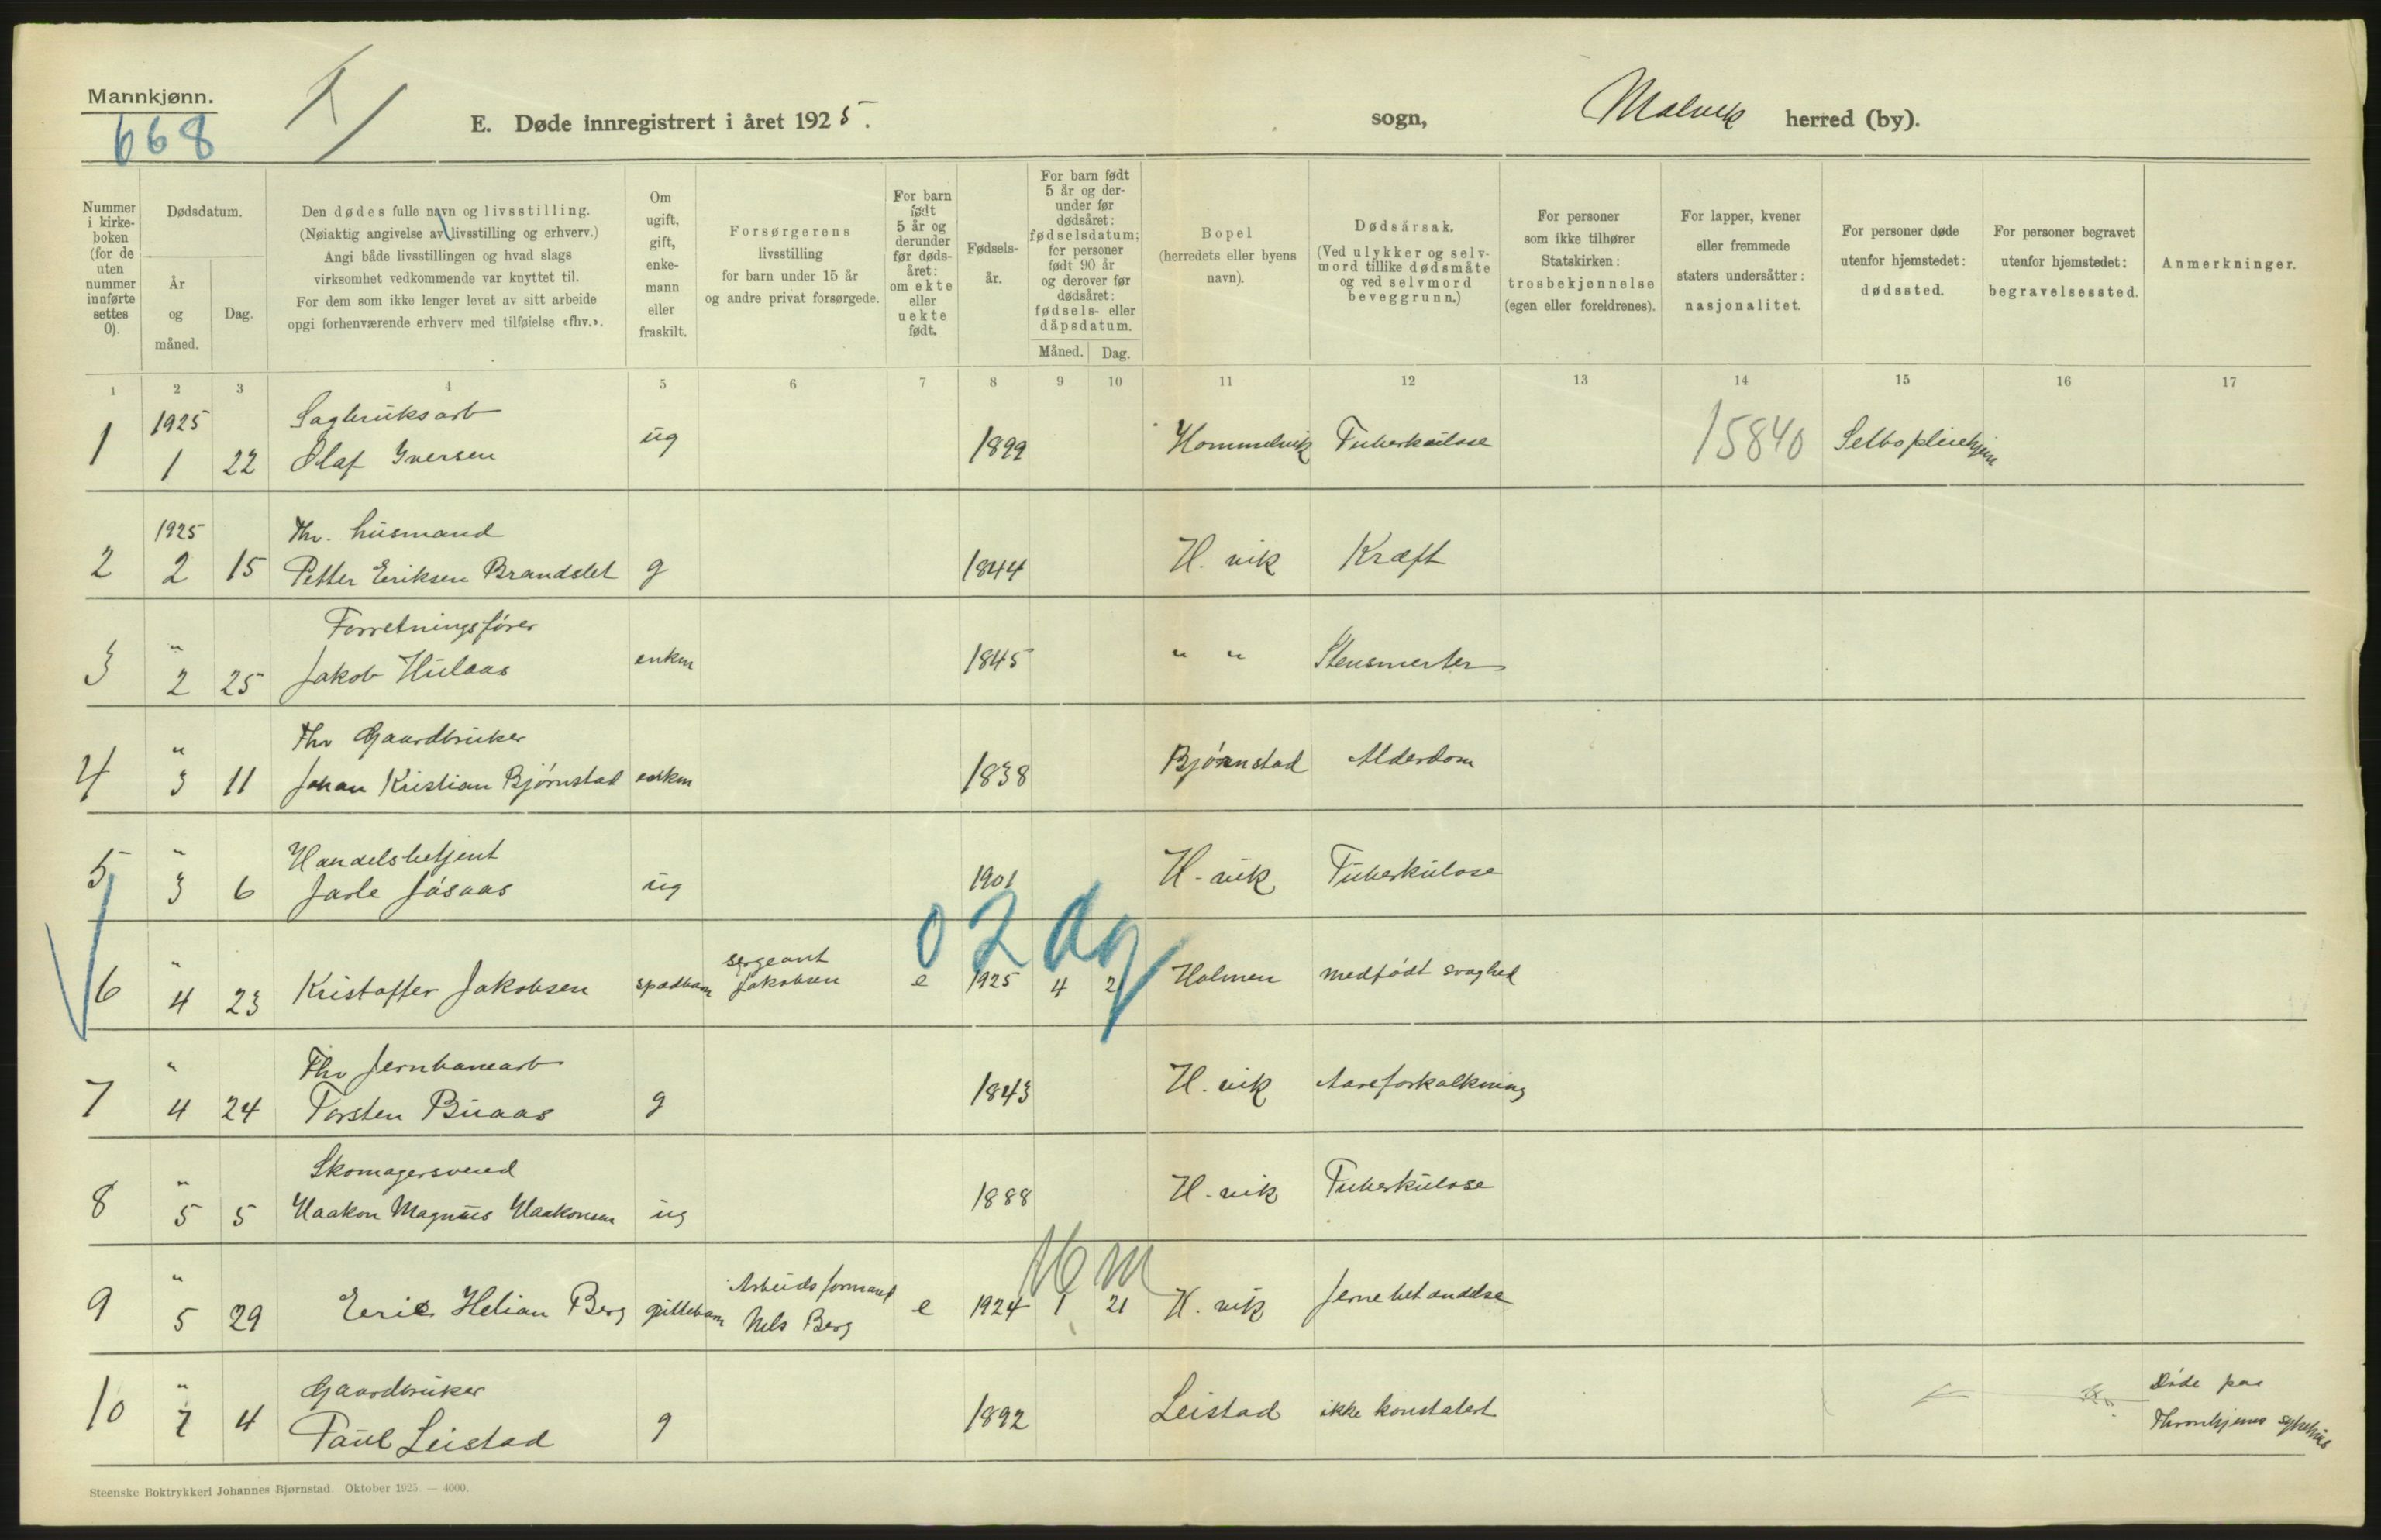 Mannkjønn.
668
E. Døde innregistrert i året 1925.
sogn,
Malvik herred (by).
Nummer i kirkeboken (for de uten nummer innførte settes 0).
Dødsdatum.
År og måned.
Dag.
Den dødes fulle navn og livsstilling.
(Nøiaktig angivelse av livsstilling og erhverv.)
Angi både livsstillingen og hvad slags
virksomhet vedkommende var knyttet til.
For dem som ikke lenger levet av sitt arbeide
opgi forhenværende erhverv med tilføielse «fhv.».
Om ugift, gift, enkemann eller fraskilt.
Forsørgerens
livsstilling
for barn under 15 år
og andre privat forsørgede.
For barn født 5 år og derunder før dødsåret: om ekte eller uekte født.
Fødselsår.
For barn født 5 år og derunder før dødsåret: fødselsdatum; for personer født 90 år og derover før dødsåret: fødsels- eller dåpsdatum.
Måned. Dag.
Bopel
(herredets eller byens
navn).
Dødsårsak.
(Ved ulykker og selvmord tillike dødsmåte og ved selvmord beveggrunn.)
For personer
som ikke tilhører
Statskirken:
trosbekjennelse
(egen eller foreldrenes).
For lapper, kvener
eller fremmede
staters undersåtter:
nasjonalitet.
For personer døde
utenfor hjemstedet:
dødssted.
For personer begravet
utenfor hjemstedet:
begravelsessted.
Anmerkninger.
1 2 3 4 5 6 7 8 9 10 11 12 13 14 15 16 17
1925 Sagbruksarb
1 1 22 Olaf Iversen ug 1899 Hommelvik Tuberkulose 15840 Selbo pleiehjem
1925 Fhv. husmand
2 2 15 Petter Eriksen Brandslet g 1844 H. vik Kræft
" Forretningsfører
3 2 25 Jakob Hulaas enkem 1845 " " Stensmerter
" Fhv Gaardbruker
4 3 11 Johan Kristian Bjørnstad enkem 1838 Bjørnstad Alderdom
" Handelsbetjent
5 3 6 Jarle Jøsaas ug 1901 H. vik Tuberkulose
0 2 dg
" sergeant
6 4 23 Kristoffer Jakobsen spædbarn Jakobsen e 1925 4 2 Holmen medfødt svaghed
" Fhv Jernbanearb
7 4 24 Torsten Buaas g 1843 H. vik Aareforkalkning
" Skomagersvend
8 5 5 Haakon Magnus Haakonsen ug 1888 H. vik Tuberkulose
16 m
" Arbeidsformand
9 5 29 Eeric Helian Berg guttebarn Nils Berg e 1924 1 21 H. vik Jernebetændelse
" Gaardbruker
10 7 4 Paul Leistad g 1892 Leistad ikke konstatert Døde paa
Thronhjems sykehus
Steenske Boktrykkeri Johannes Bjørnstad. Oktober 1925. — 4000.